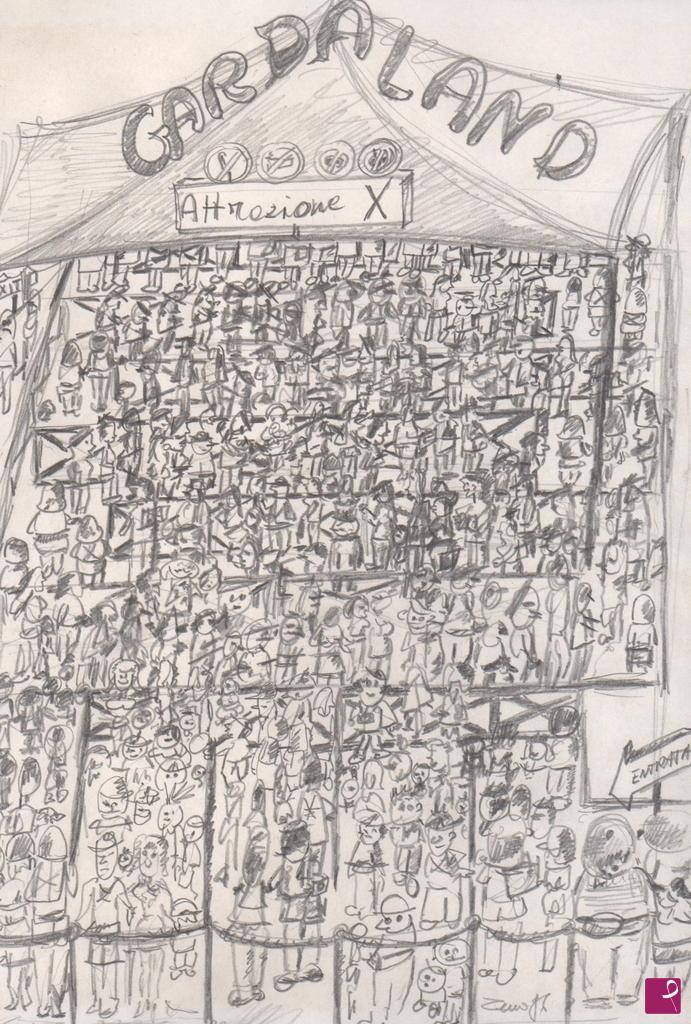 GARDALAND
Attrazione X
ENTRATA